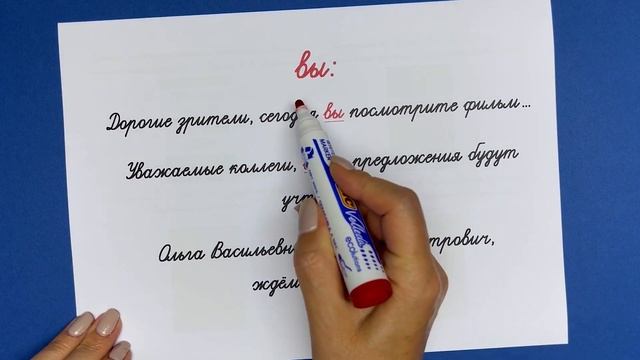 вы:
Дорогие зрители, сегодня вы посмотрите фильм...
Уважаемые коллеги, предложения будут
Ольга Васильевн
ждём